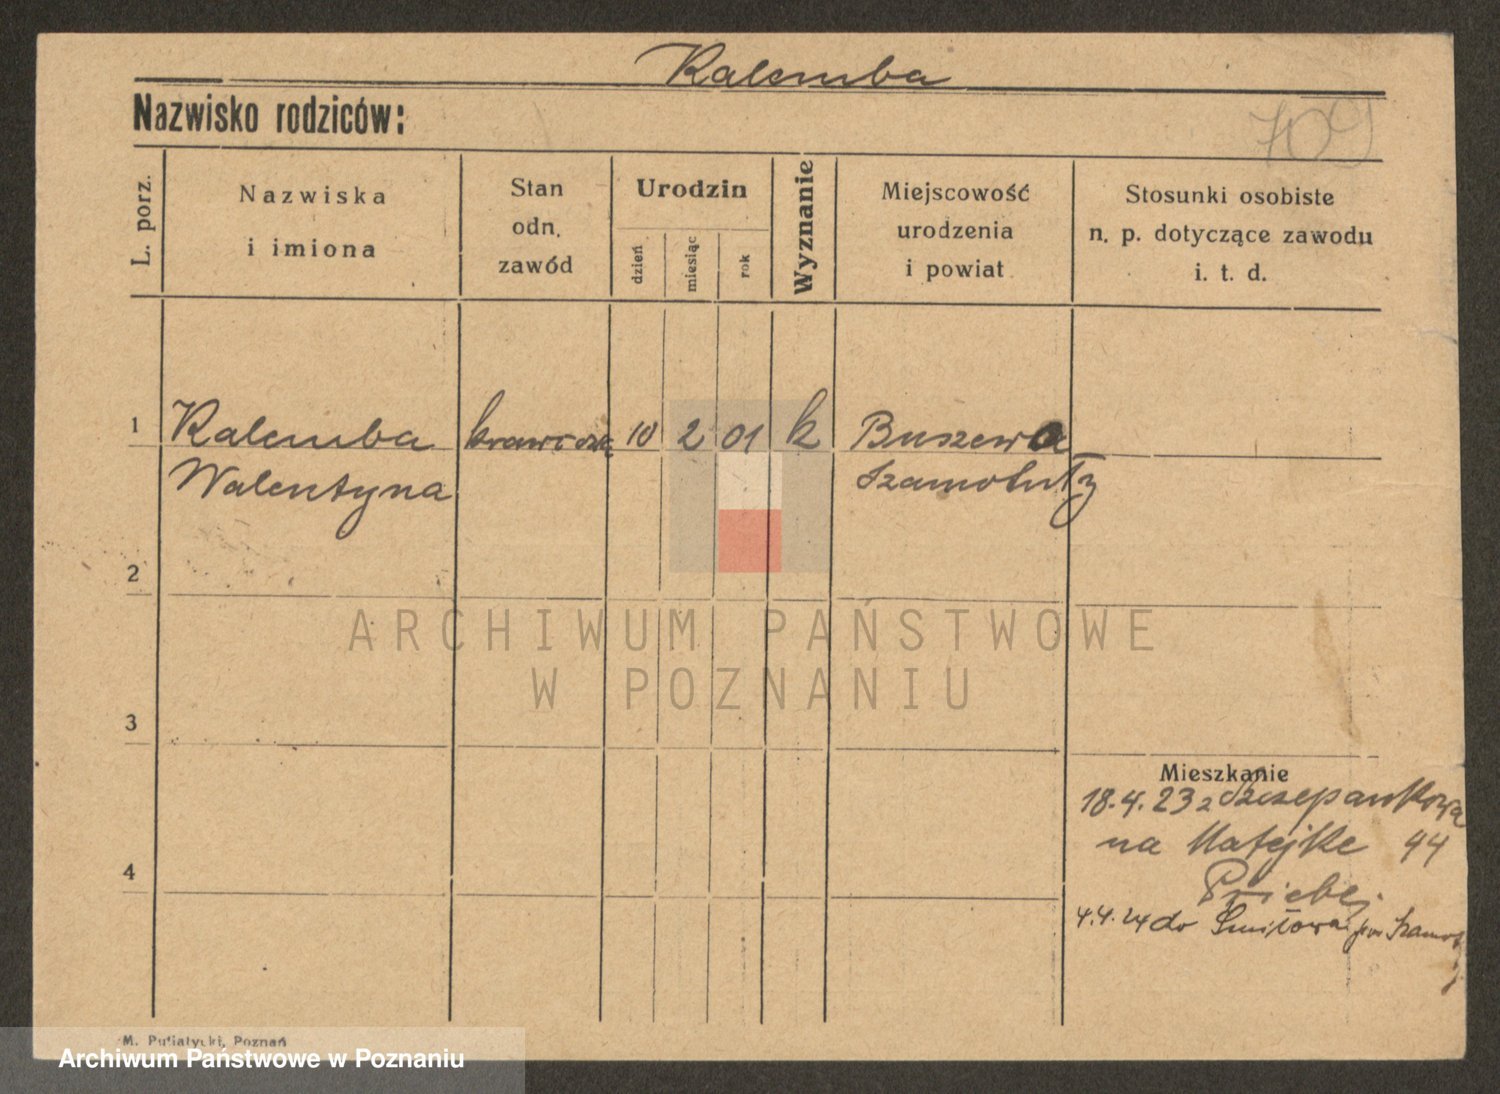 Kalemba
Nazwisko rodziców:
709
L. porz.
Nazwiska
i imiona
Stan
odn.
zawód
Urodzin
dzień
miesiąc
rok
Wyznanie
Miejscowość
urodzenia
i powiat
Stosunki osobiste
n. p. dotyczące zawodu
i. t. d.
1 Kalemba krawcowa 10 2 01 k Buszewo
Walentyna Szamotuły
2
3
4
Mieszkanie
18.4.23 z Szczepankowa
na Matejke 44
4.4.24 do Śmiłowa pow Szamot
M. Putiatycki, Poznań
ARCHIWUM PAŃSTWOWE
W POZNANIU
Archiwum Państwowe w Poznaniu